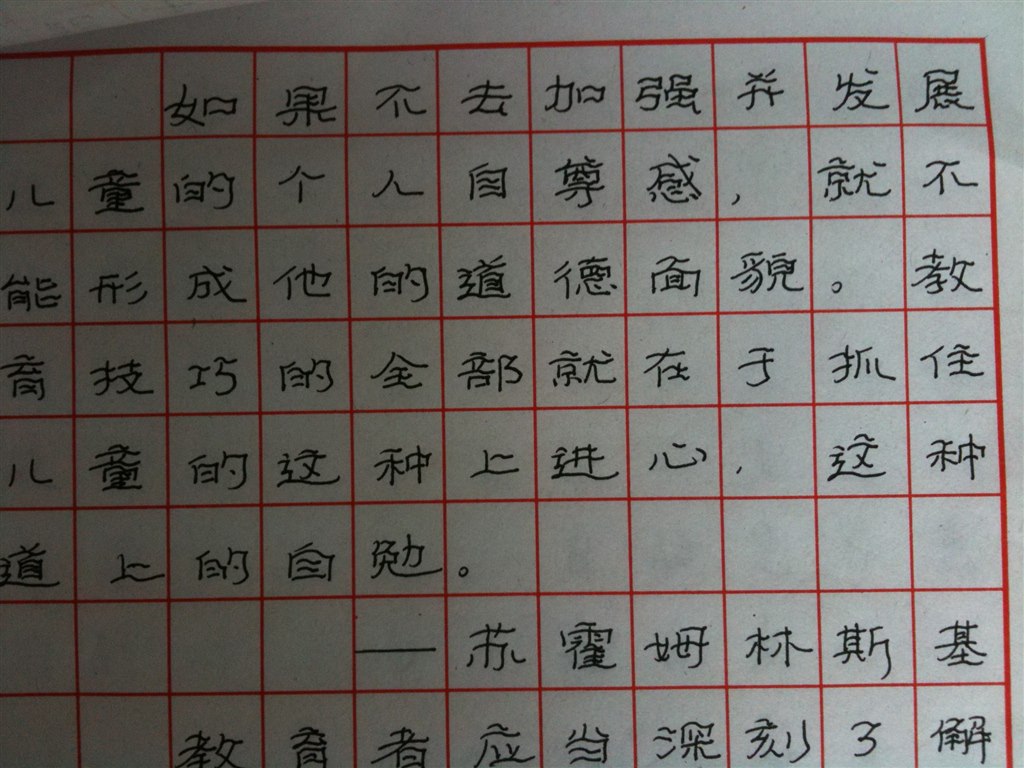 如果不去加强并发展
儿童的个人自尊感，就不
能形成他的道德面貌。教
育技巧的全部就在于抓住
儿童的这种上进心，这种
道上的自勉。
—苏霍姆林斯基
教育者应当深刻了解